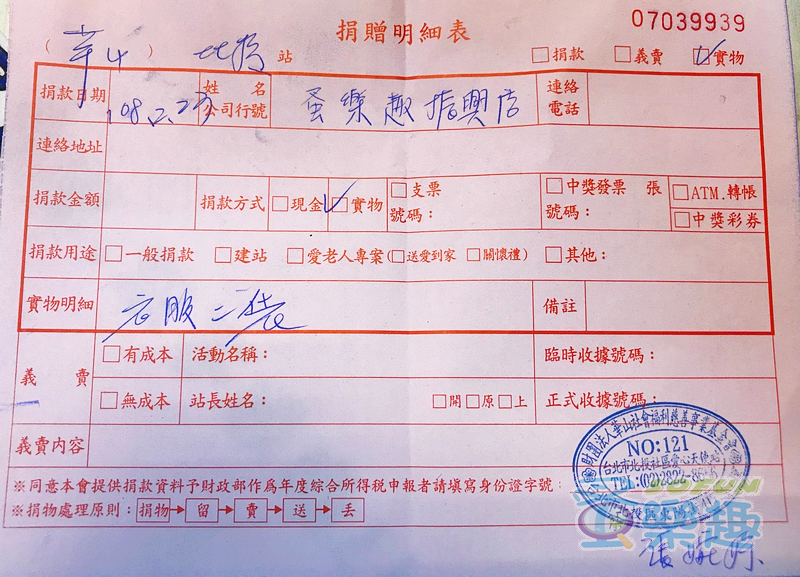 捐贈明細表
07039939
(華山) 北投站
□捐款 □義賣 ☑實物
捐款日期 108.2.27 姓名 公司行號 蚤樂趣振興店 連絡電話
連絡地址
捐款金額 捐款方式 □現金 ☑實物 □支票 號碼： □中獎發票 張 號碼： □ATM.轉帳 □中獎彩券
捐款用途 □一般捐款 □建站 □愛老人專案(□送愛到家 □關懷禮) □其他：
實物明細 衣服二袋 備註
義賣 □有成本 活動名稱： 臨時收據號碼：
□無成本 站長姓名： □開□原□上 正式收據號碼：
義賣內容
財團法人華山社會福利慈善事業基金會
NO:121
台北市北投社區愛心天使站
TEL:(02)2822-
台北市北投區東陽街
※同意本會提供捐款資料予財政部作為年度綜合所得税申報者請填寫身份證字號：
※捐物處理原則：捐物→留→賣→送→丟
蚤樂趣